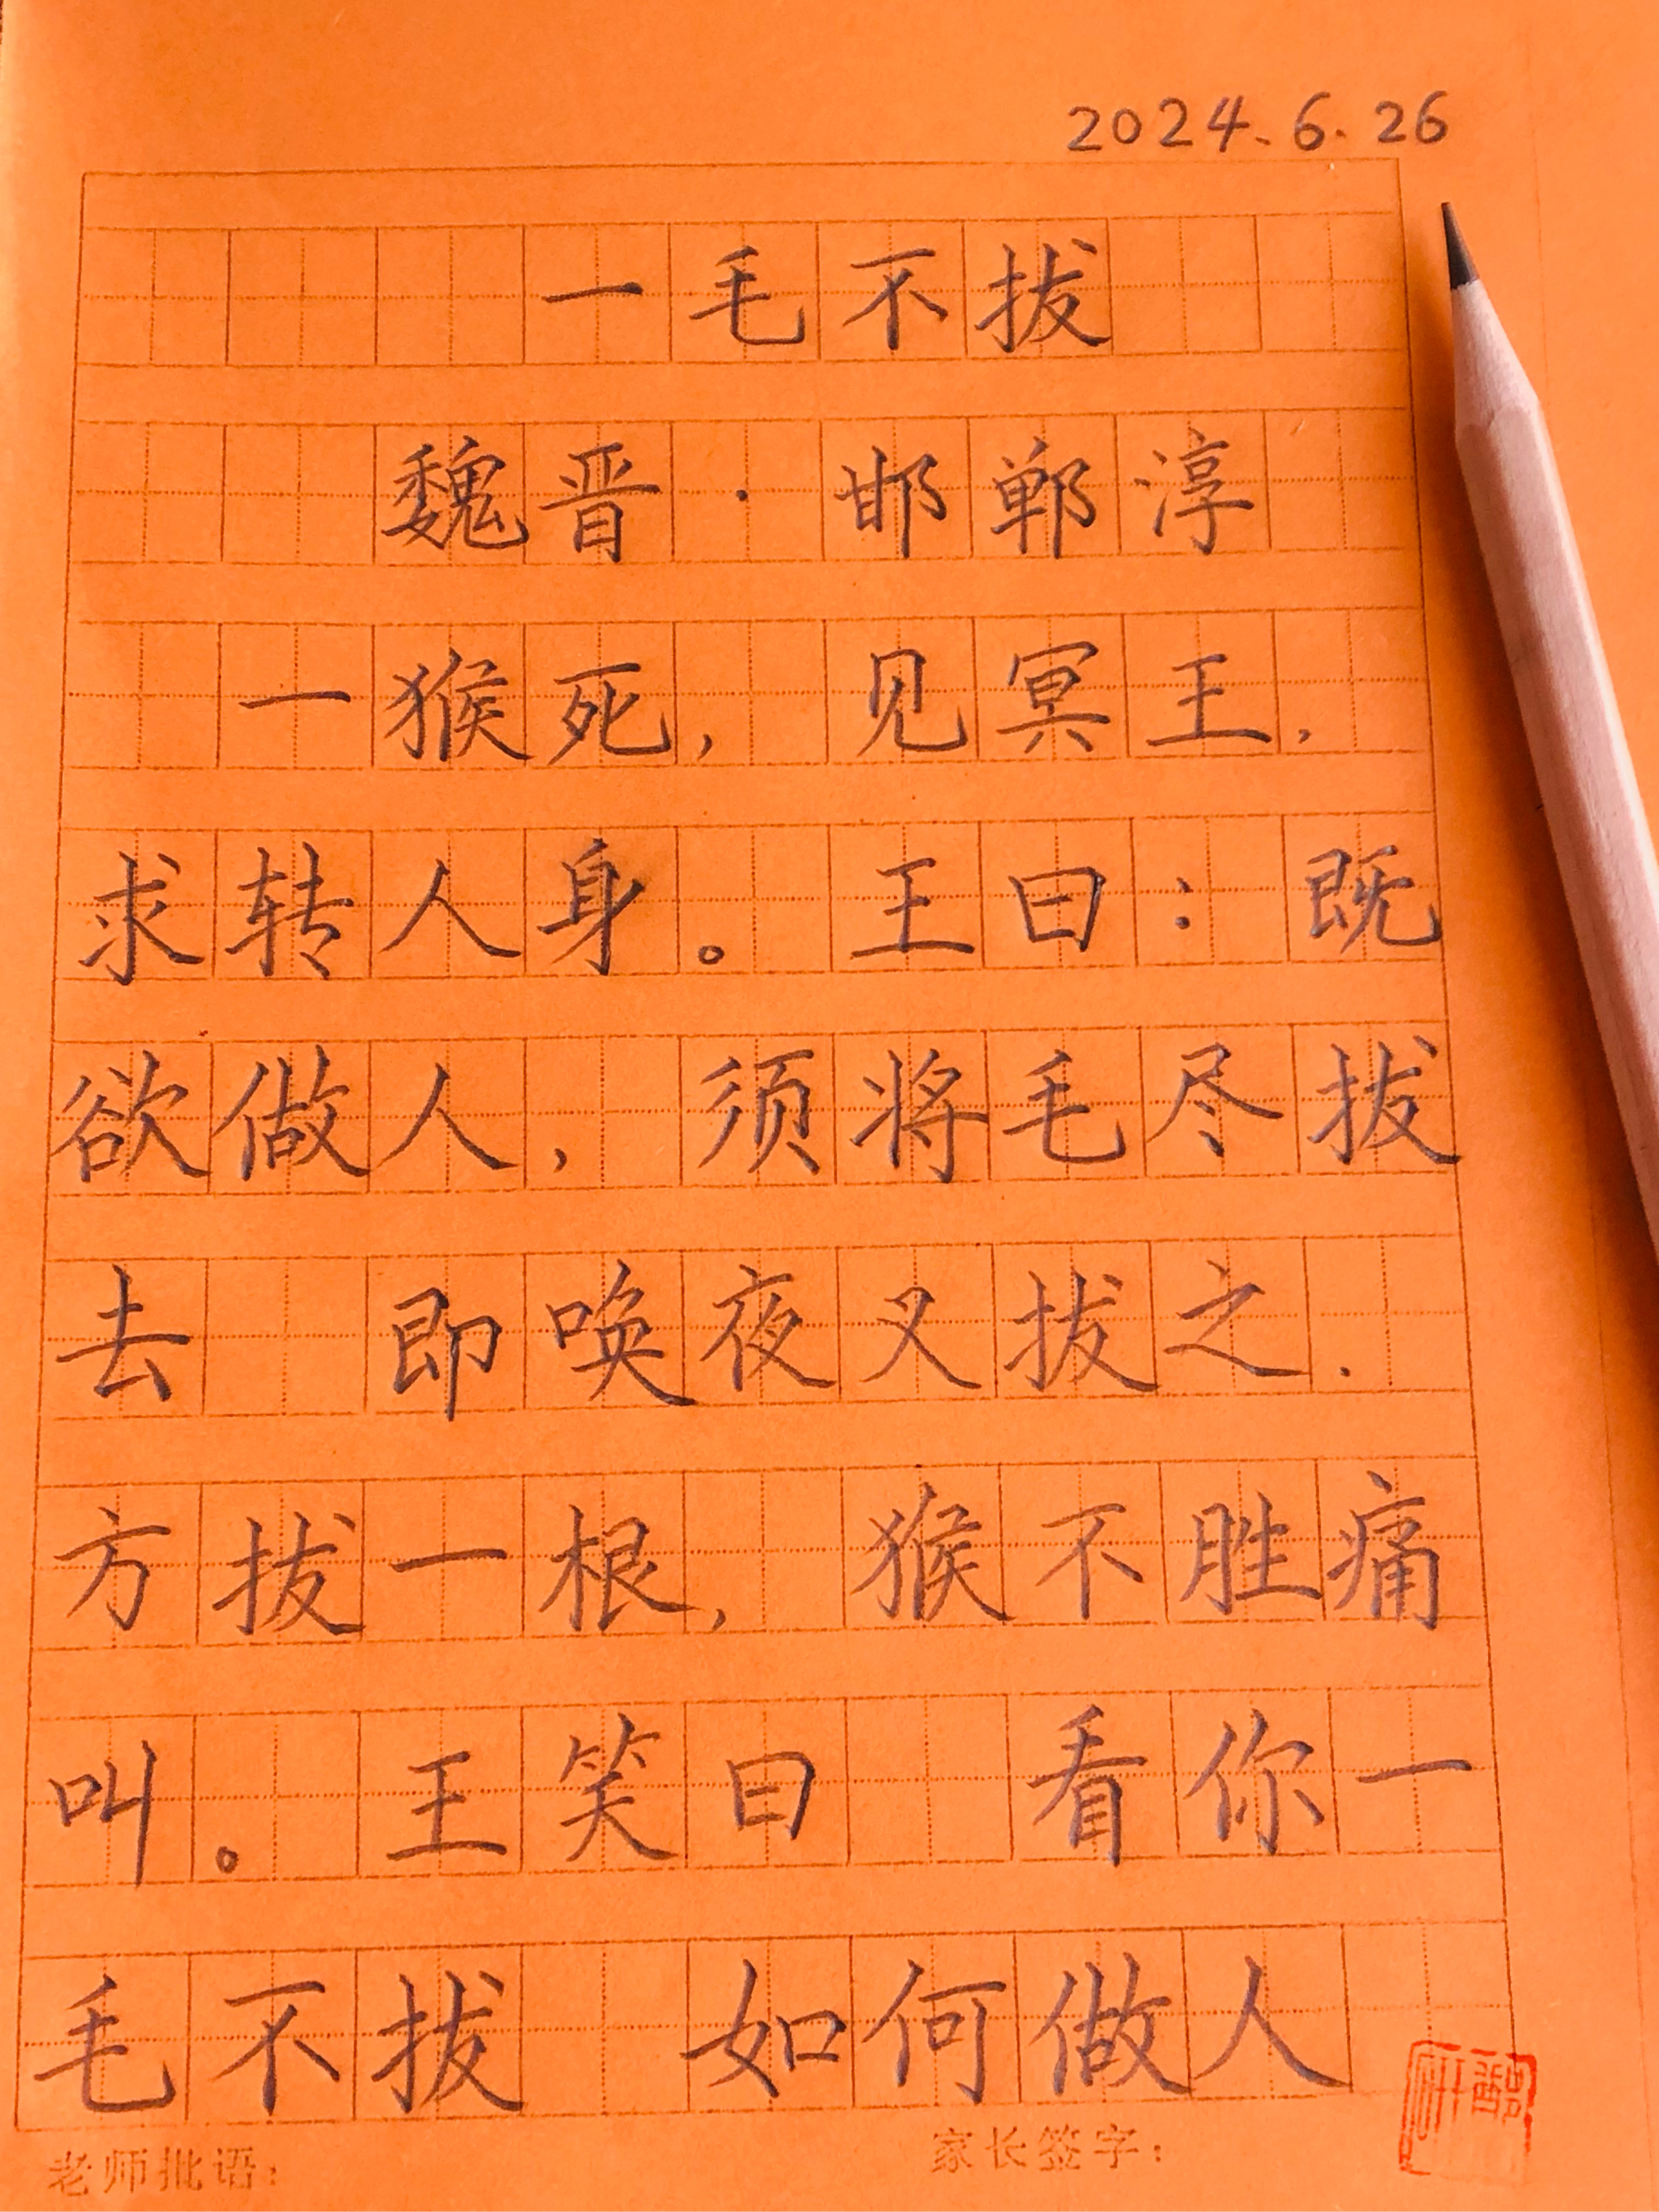 2024.6.26
一毛不拔
魏晋·邯郸淳
一猴死，见冥王，
求转人身。王曰：既
欲做人，须将毛尽拔
去 即唤夜叉拔之.
方拔一根，猴不胜痛
叫。王笑曰 看你一
毛不拔 如何做人
老师批语： 家长签字：